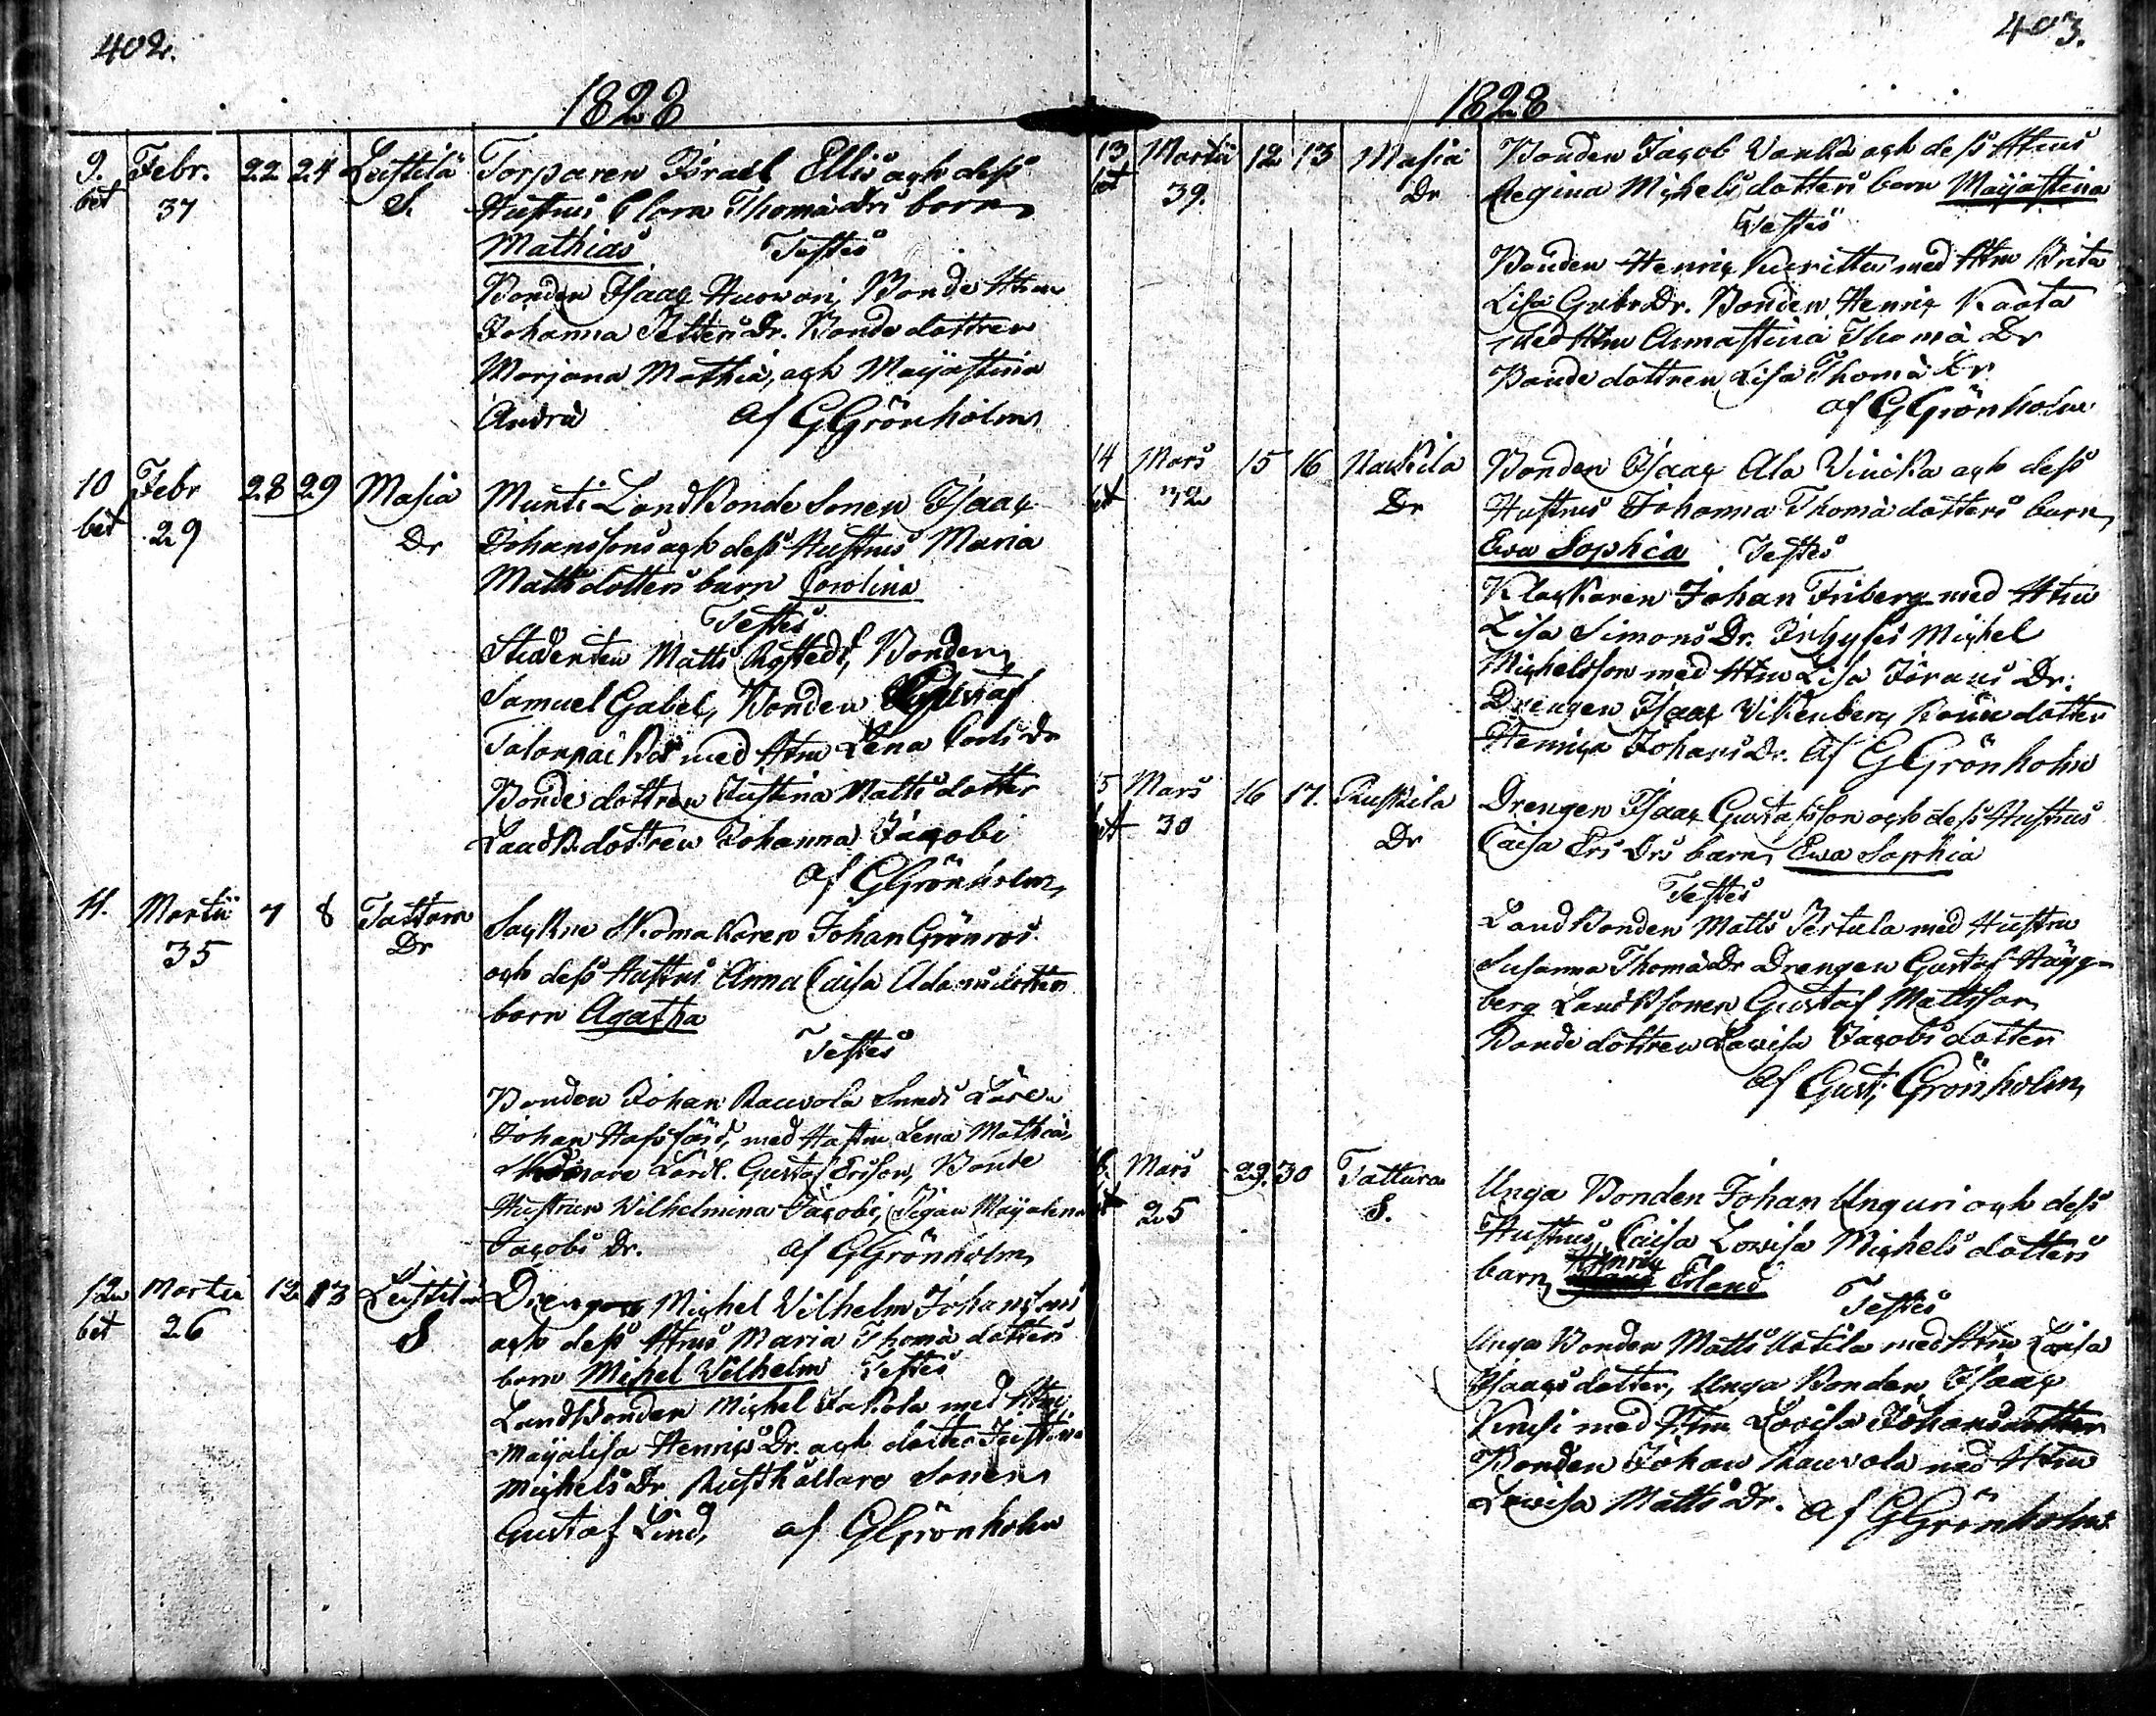 402.
1828
9. Febr. 22 24 Leistilä Torparen Israel Ellis och dess
bet 37 S. Hustrus Clara Thomä drs barn
Mathias Testes
Bonden Isaac Bonde Hrn
Johanna Petters Dr. Bondedottren
Marjana Mathiä, och Maijastina
Andrä af GGrönholm
10 Febr 28 29 Masia Munti LandBonde Sonen Isaac
bet 29 Dr Johanssons och dess Hustrus Maria
Matts dotters barn Carolina
Testes
Studenten Matts Bonden
Samuel Gabel, Bonden Gustaf
med Hrn Lena Carls Dr
Bonde dottren Justina Matts dotter
LandB. dottren Johanna Jacobi
af GGrönholm
11. Martii 7 8 Tattara Sockne Skomakaren Johan Grönroos
35 Dr och dess Hustrus Anna Caisa Adams dotters
barn Agatha
Testes
Bonden Johan Rauvola
Johan med Hustru Lena Mathiä,
Gustaf Ersson, Bonde
Hustrun Wilhelmina Jacobi, Pigan Maijalena
Jacobs Dr. af GGrönholm
12 Martii 12 13 Leistilä Drengen Michel Vilhelm Johanssons
bet 26 S och dess Hrus Maria Thomä dotters
barn Michel Vilhelm Testes
LandBonden Michel Jakola med Hru
Maijalisa Henrics Dr. och dotter Justina
Michels Dr Rusthållare Sonen
Gustaf Lind, af GGrönholm
403.
1828
13 Martii 12 13 Masia Bonden Jacob Vanka och dess Hrus
bet 39. Dr Regina Michels dotters barn Maijastina
Testes
Bonden Henric Kurittu med Hru Brita
Lisa Dr. Bonden Henric Kaata
med Hru Annastina Thomä Dr
Bonde dottren Lisa Thomä Dr
af GGrönholm
14 Mars 15 16 Nackila Bonden Isaac Ala Vinicka och dess
bet 32 Dr Hustrus Johanna Thomä dotters barn
Ewa Sophia Testes
Klockaren Johan Friberg med Hru
Lisa Simons Dr. Inhyses Michel
Michelsson med Hru Lisa Jörans Dr.
Drengen Isaac Vikenberg dotter
Henrica Johans Dr. af GGrönholm
15 Mars 16 17. Ruskila Drengen Isaac Gustafsson och dess Hustrus
bet 30 Dr Caisa Ers Drs barn Ewa Sophia
Testes
LandBonden Matts Pertula med Hustru
Susanna Thomä Dr Drengen Gustaf Hägg-
berg LandBsonen Gustaf Mattsson
Bondedottren Lovisa Jacobs dotter
af Gust: Grönholm
16. Mars 29. 30 Tattara Unga Bonden Johan Unguri och dess
bet 25 S. Hustrus, Caisa Lovisa Michels dotters
Henric
barn Erland Testes
Unga Bonden Matts Uotila med Hru Lovisa
Isaacs dotter, Unga Bonden Isaac
med Hru Lovisa Johans dotter
Bonden Johan Rauvola med Hru
Lovisa Matts Dr. af GGrönholm